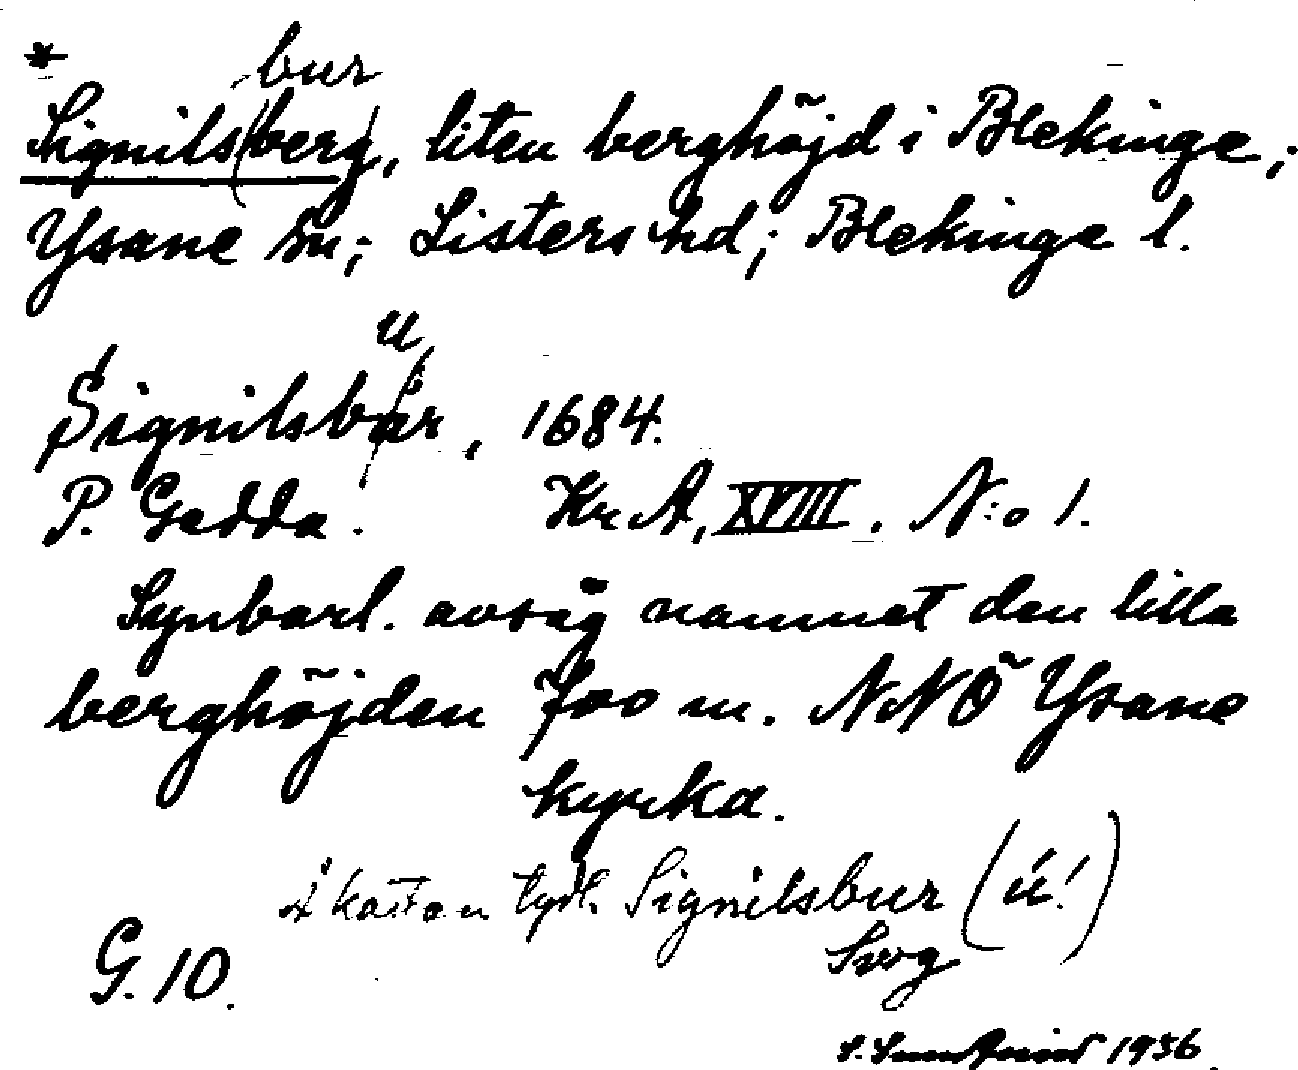 *
bur
Signils(berg), liten berghöjd i Blekinge;
Ysane sn; Listers hd; Blekinge l.
u
Signilsbår, 1684.
P. Gedda. Kr A, XVIII. N:o 1.
Synbarl. avsåg namnet den lilla
berghöjden 700 m. NNÖ Ysane
kyrka.
I kartan tydl. Signilsbur (ú!)
G. 10.
1956